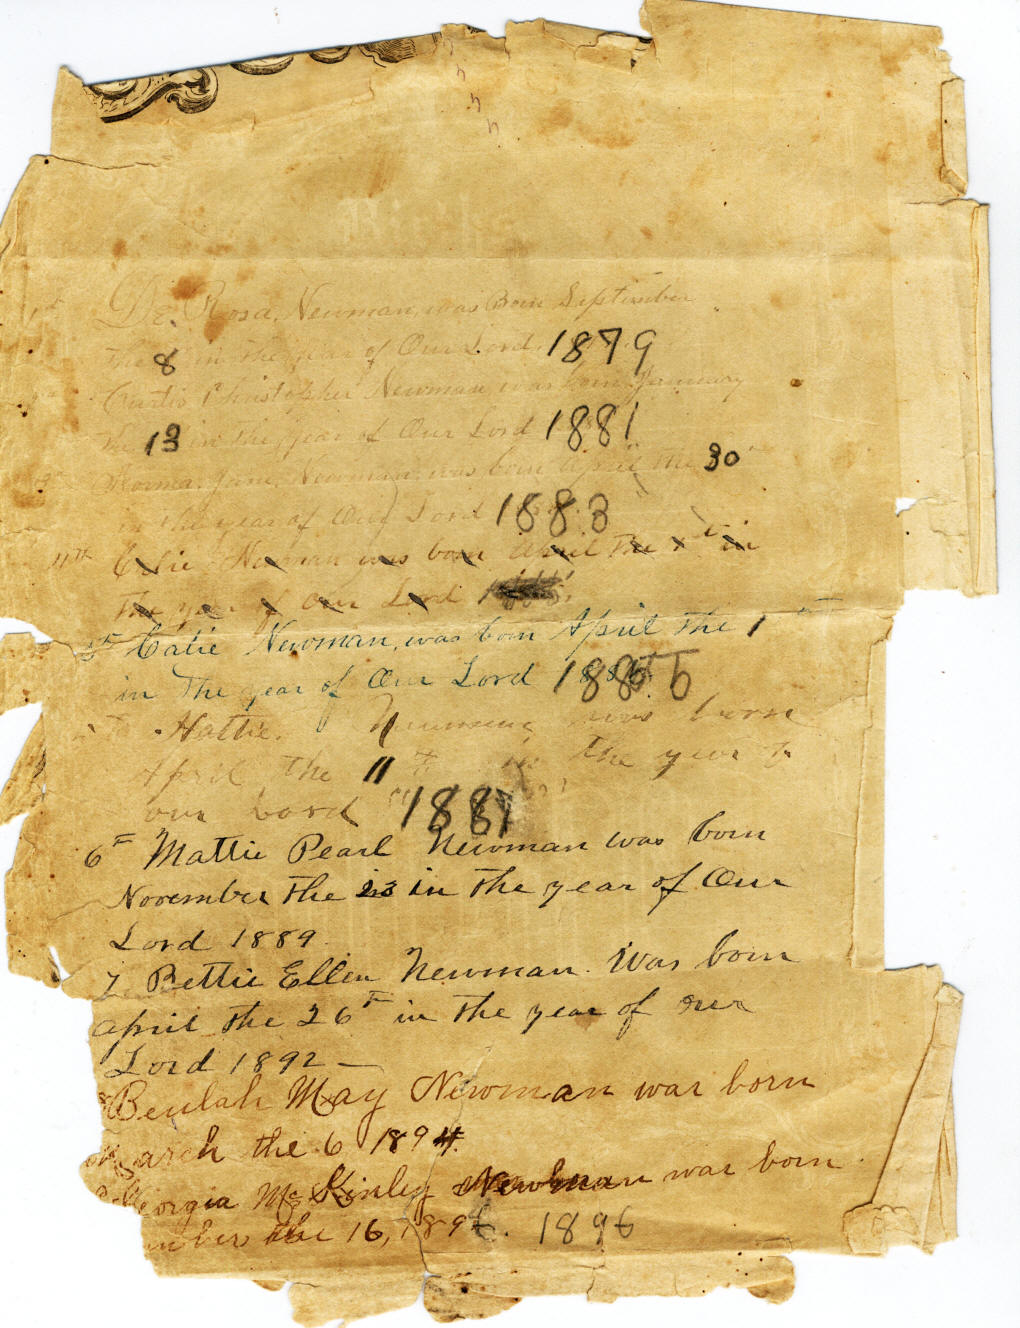 De Rosa. Newman, was Born September
the 8 in the year of Our Lord. 1879
Curtis Christopher Newman, was born January
the 13 in the year of Our Lord 1881
Jane, Newman, was born April the 30
in the year of Our Lord 1883
4TH Catie Newman was born April the in
the year of Our Lord
Catie Newman, was born April the 1
in the year of Our Lord 1885
Hattie. was born
April the 11 the year
our Lord 1887
6 Mattie Pearl Newman was born
November the 23 in the year of Our
Lord 1889.
7 Bettie Ellen Newman. Was born
April the 26 in the year of
Lord 1892 —
Beulah May Newman was born
arch the 6 1894.
eorgia Mc Kinley Newman was born
mber the 16, 1896. 1896